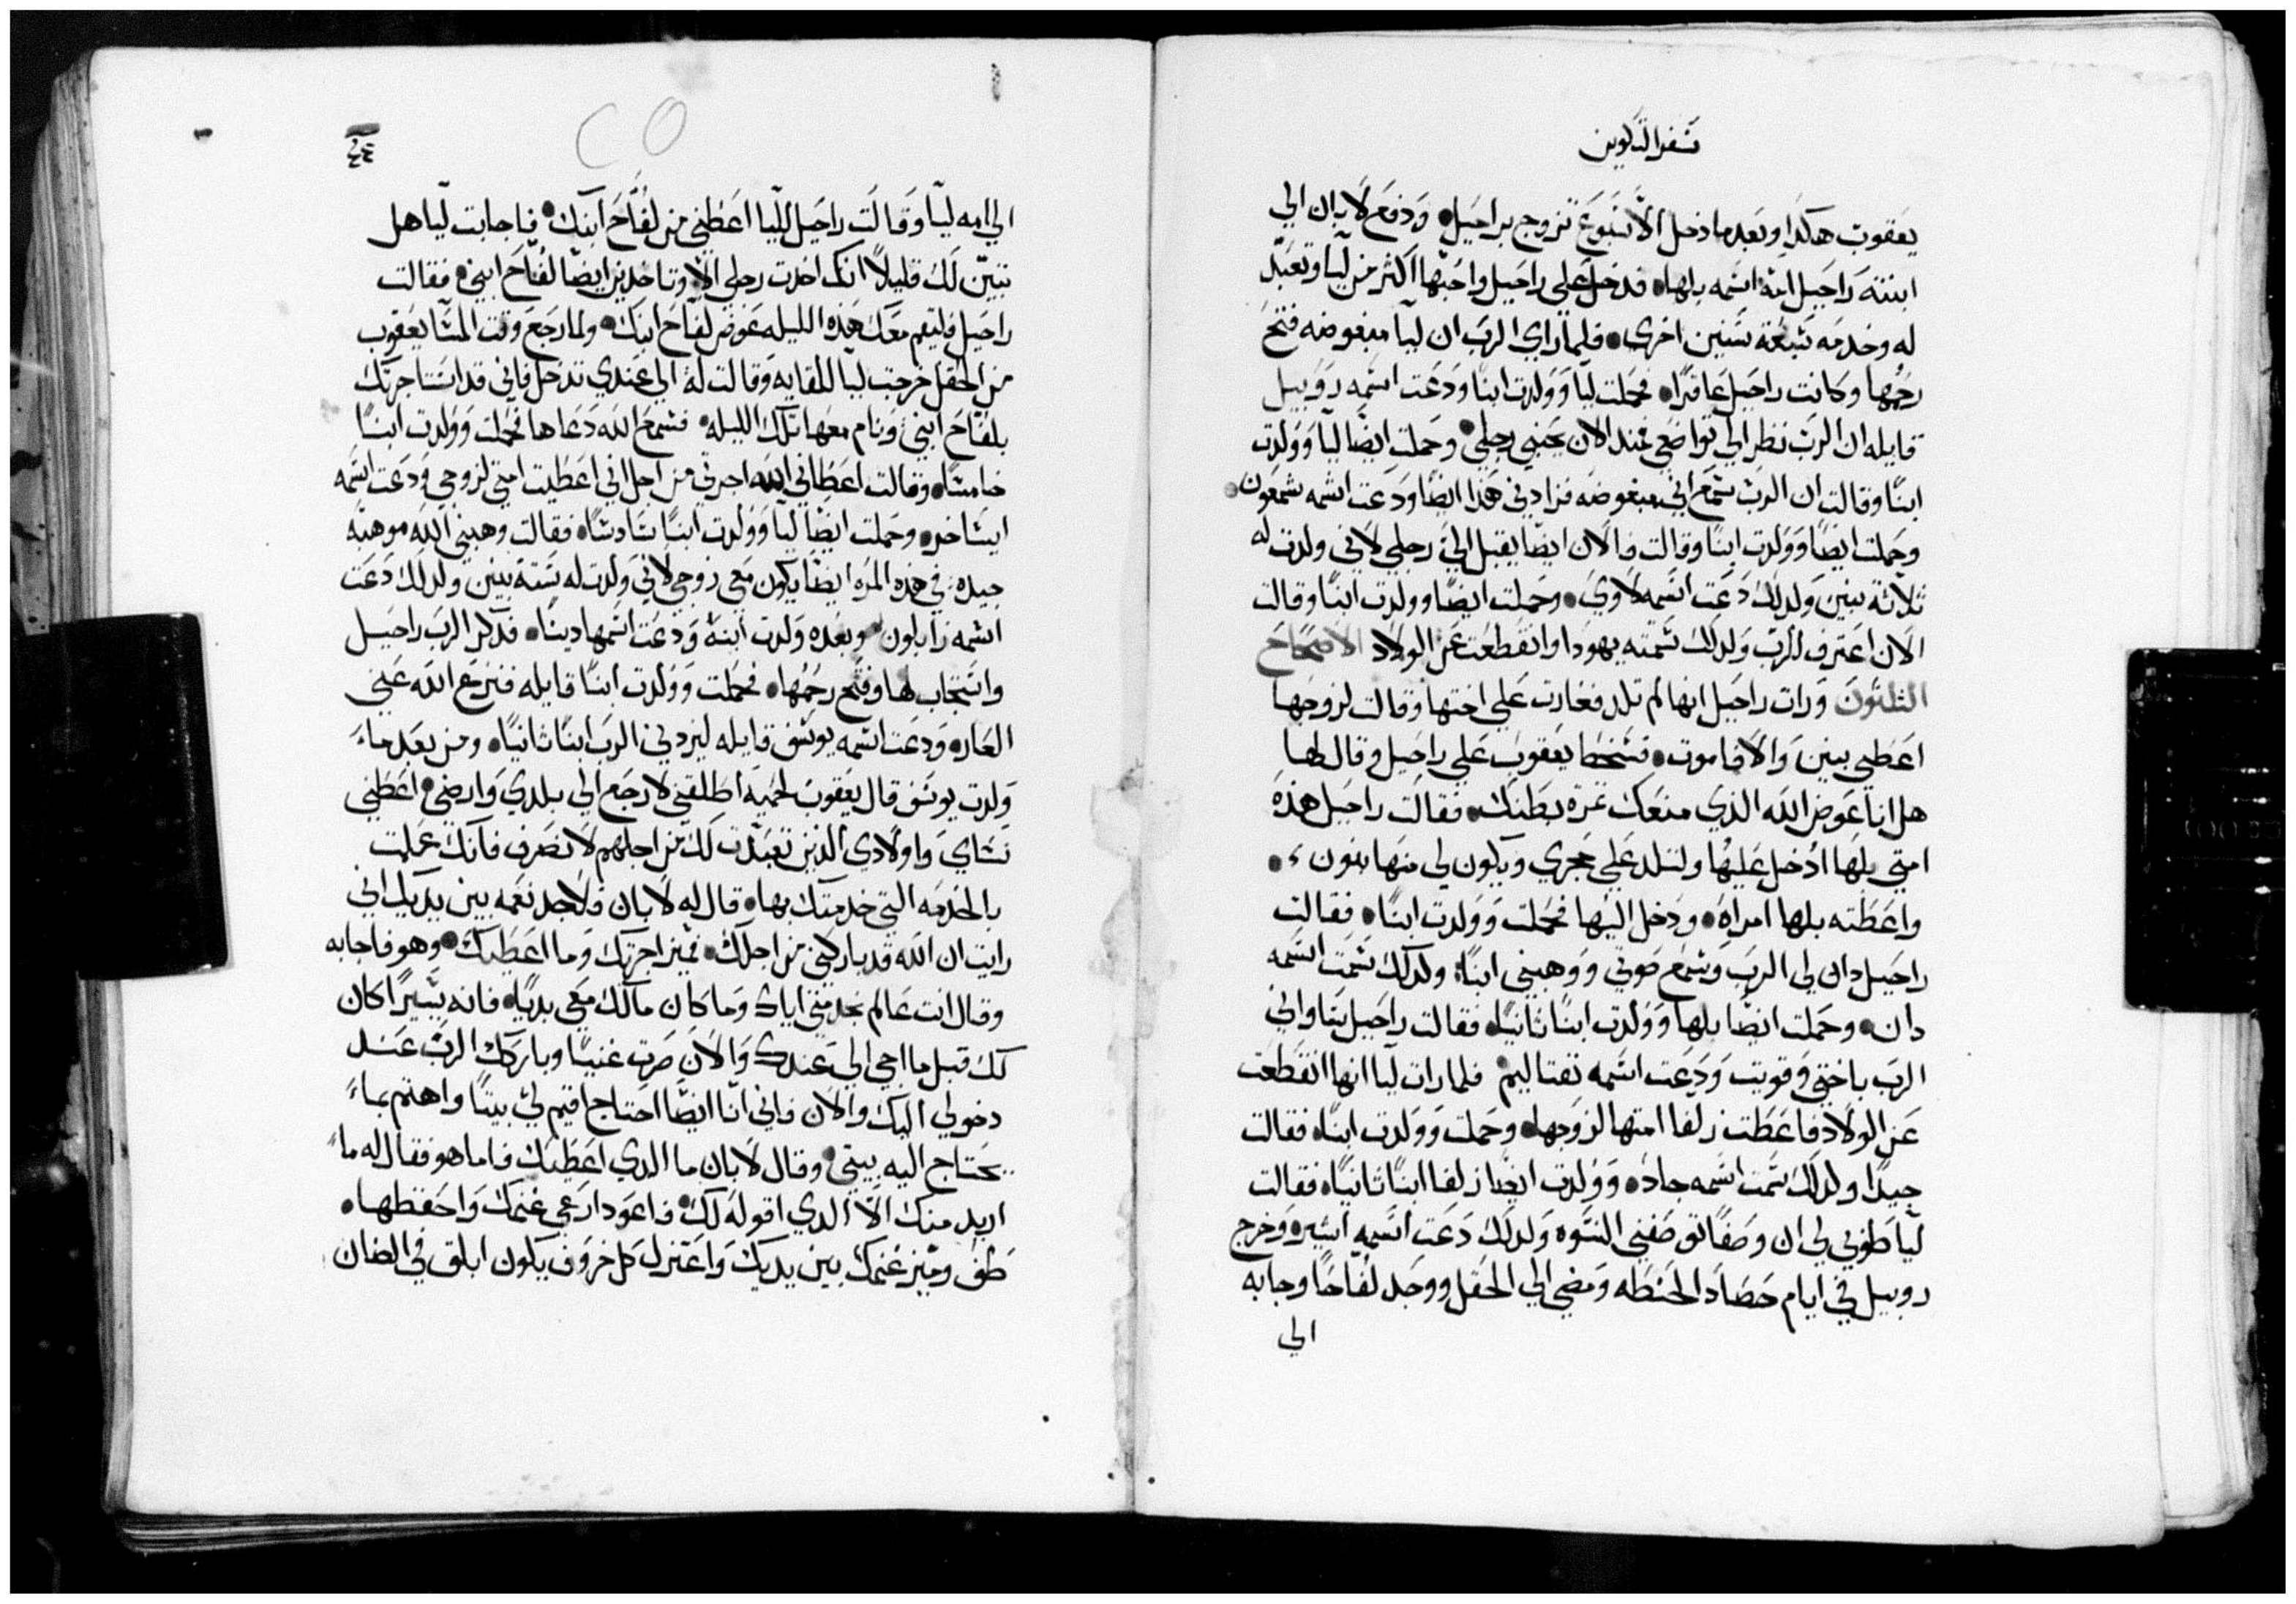 سفر التكوين
يعقوب هكدا وبعدما دخل الاسبوع تزوج براحيل ودفع لابان الي
ابنته راحيل امة اسمها بلها فدخل علي راحيل واحبها اكثر من ليا وتعبد
له وخدمه سبعة سنين اخري فلما راي الرب ان ليا مبغوضه فتح
رحمها وكانت راحيل عاقرا فحملت ليا وولدت ابنا ودعت اسمه روبيل
قايله ان الرب نظر الي تواضعي فمند الان يحبني رجلي وحملت ايضا ليا وولدت
ابنا وقالت ان الرب سمع اني مبغوضه فزادني هدا ايضا ودعت اسمه سمعون
وحملت ايضا وولدت ابنا وقالت فالان ايضا يقبل الي رجلي لاني ولدت له
ثلاثة بنين ولدلك دعت اسمه لاوي وحملت ايضا وولدت ابنا وقالت
الان اعترف للرب ولدلك سمته يهودا وانقطعت عن الولاد الاصحاح
الثلثون ورات راحيل انها لم تلد فغارت علي اختها وقالت لزوجها
اعطني بنين والا فاموت فسخط يعقوب علي راحيل وقال لها
هل انا عوض الله الذي منعك ثمرة بطنك فقالت راحيل هذه
امتي بلها ادخل عليها ولتلد علي حجري ويكون لي منها بنون
واعطته بلها امراه ودخل اليها فحملت وولدت ابنا فقالت
راحيل دان لي الرب وسمع صوتي ووهبني ابنا ولدلك سمت اسمه
دان وحملت ايضا بلها وولدت ابنا ثانيا فقالت راحيل ساواني
الرب باختي وقويت ودعت اسمه نفتاليم فلما رات ليا انها انقطعت
عن الولاد فاعطت زلفا امتها لزوجها وحملت وولدت ابنا فقالت
جيدا ولدلك سمت اسمه جاد وولدت ايضا زلفا ابنا ثانيا فقالت
ليا طوبي لي ان وصفا تصفني النسوه ولدلك دعت اسمه اشير وخرج
روبيل في ايام حصاد الحنطه ومضي الي الحقل ووجد لفاحا وجابه
الي
٤٤
الي امه ليا وقالت راحيل لليا اعطني من لفاح ابنك فاجابت ليا هل
تبين لك قليلا انك اخدت رجلي الا وتاخدين ايضا لفاح ابني فقالت
راحيل فلينم معك هذه الليله عوض لفاح ابنك ولما رجع وقت المسا يعقوب
من الحقل خرجت ليا للقايه وقالت له الي عندي تدخل فاني قد استاجرتك
بلفاح ابني ونام معها تلك الليله فسمع الله دعاها فحملت وولدت ابنا
خامسا وقالت اعطاني الله اجرتي من اجل اني اعطيت امتي لزوجي ودعت اسمه
ايساخر وحملت ايضا ليا وولدت ابنا سادسا فقالت وهبني الله موهبه
جيده في هذه المره ايضا يكون معي زوجي لاني ولدت له ستة بنين ولدلك دعت
اسمه زابلون وبعده ولدت ابنة ودعت اسمها دينا فدكر الرب راحيل
واستجاب لها وفتح رحمها فحملت وولدت ابنا قايله فنزع الله عني
العار ودعت اسمه يوسف قايله ليزدني الرب ابنا ثانيا ومن بعد ما
ولدت يوسف قال يعقوب لحميه اطلقني لارجع الي بلدي وارضي اعطني
نساي واولادي الذين تعبدت لك من اجلهم لانصرف فانك علمت
بالخدمه التي خدمتك بها قال له لابان فلاجد نعمه بين يديك اني
رايت ان الله قد باركني من اجلك ميز اجرتك وما اعطيك وهو فاجابه
وقال انت عالم بخدمتي اياك وما كان مالك معي بديا فانه يسيرا كان
لك قبل ما اجي الي عندك والان صرت غنيا وباركك الرب عند
دخولي اليك والان فاني انا ايضا احتاج اقيم لي بيتا واهتم بما
يحتاج اليه بيتي وقال لابان ما الدي اعطيك فاما هو فقال له ما
اريد منك الا الدي اقوله لك فاعود ارعي غنمك واحفظها
طف وميز غنمك بين يديك واعتزل كل خروف يكون ابلق في الضان